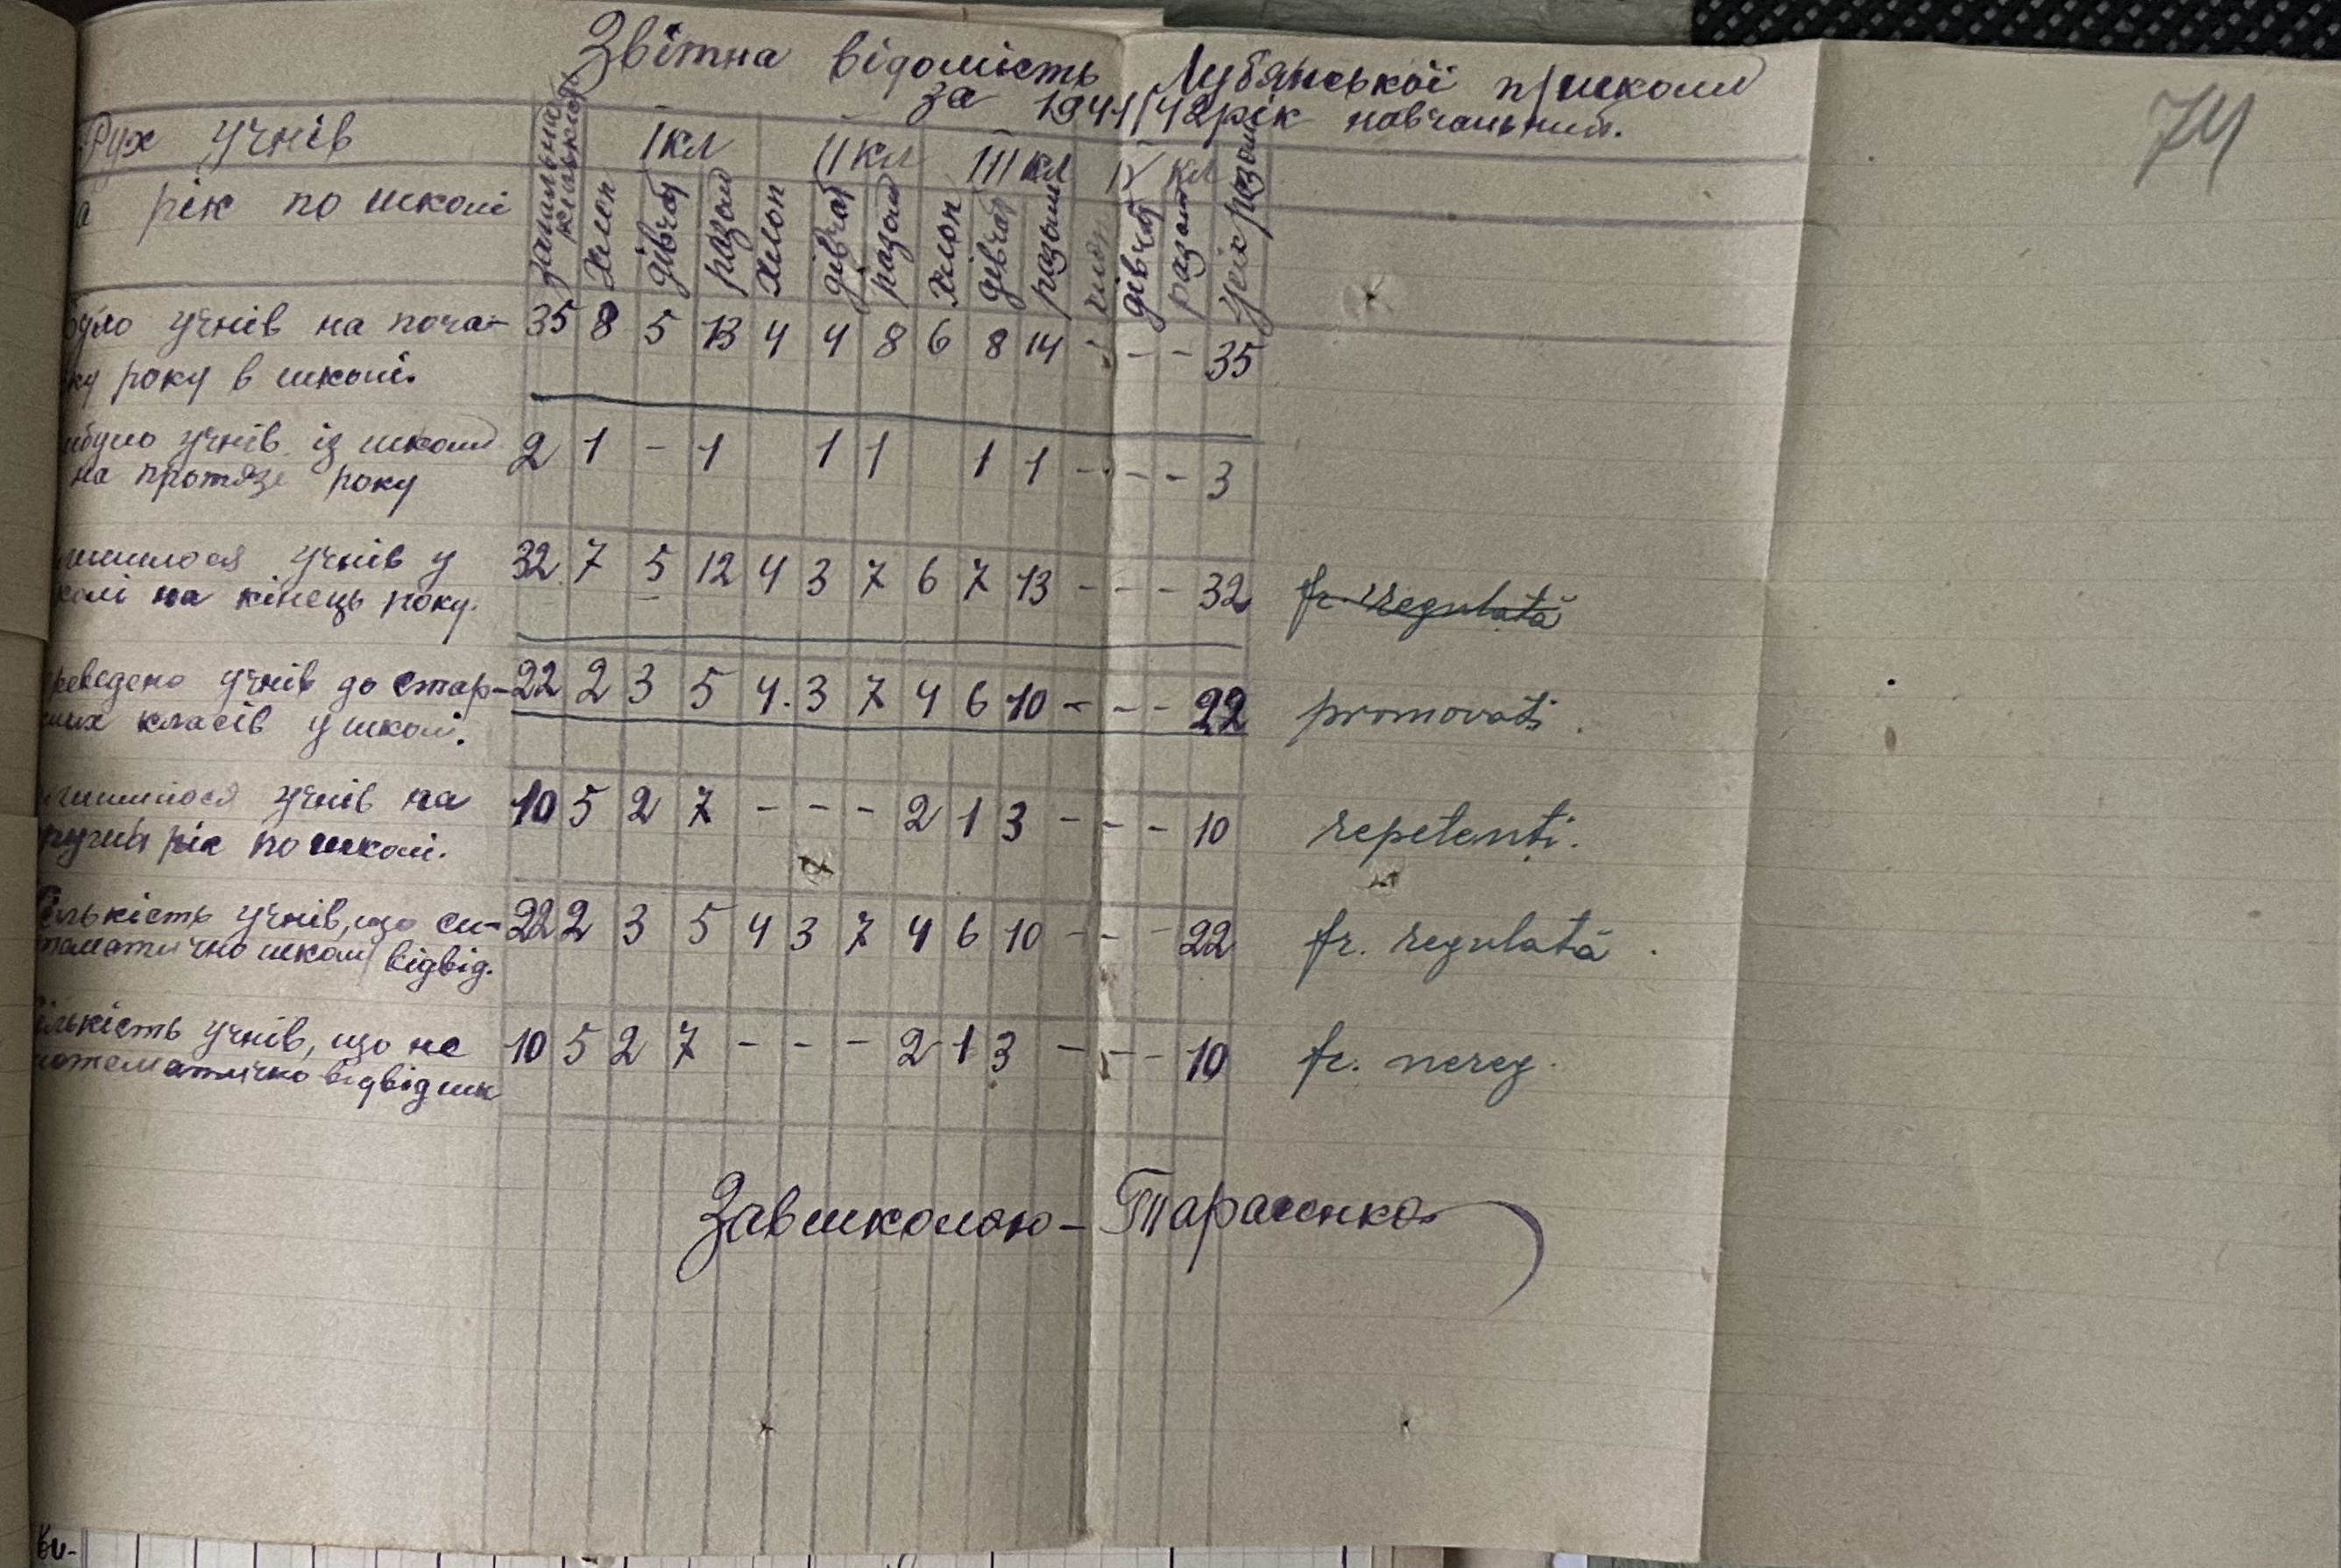 Звітна відомість Лубянської п/школи
за 1941/42 рік навчальний.
74
Рух учнів загальна кількість I кл II кл III кл IV кл
рік по школі хлоп дівчат разом хлоп дівчат разом хлоп дівчат разом хлоп дівчат разом усіх разом
було учнів на поча- 35 8 5 13 4 4 8 6 8 14 - - - 35
ку року в школі.
було учнів із школи 2 1 - 1 1 1 1 1 - - - 3
на протязі року
лишилося учнів у 32 7 5 12 4 3 7 6 7 13 - - - 32 fr. regulată
колі на кінець року.
реведено учнів до стар- 22 2 3 5 4. 3 7 4 6 10 - - - 22 promovați.
ших класів у школі.
лишилося учнів на 10 5 2 7 - - - 2 1 3 - - - 10 repetenți.
другий рік по школі.
ількість учнів, що си- 22 2 3 5 4 3 7 4 6 10 - - - 22 fr. regulată.
тематично школу відвід.
ількість учнів, що не 10 5 2 7 - - - 2 1 3 - - - 10 fr. nereg.
стематично відвід шк
Завшколою - Тарасенко
ви-